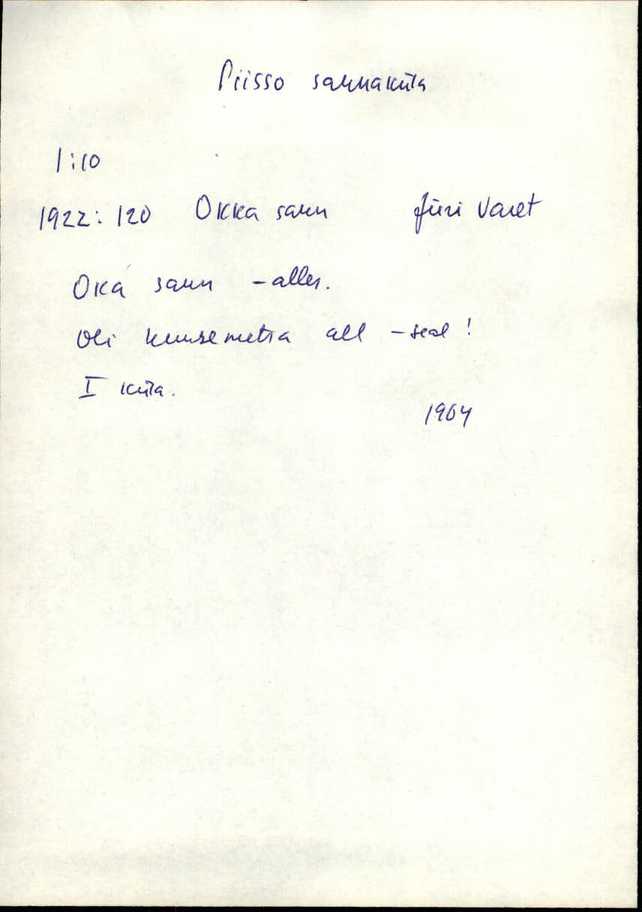 Piisso saunaküla
1:10
1922: 120 Okka saun Jüri Varet
Oka saun - alles.
Oli kuusemetsa all - seal!
I küla.
1964